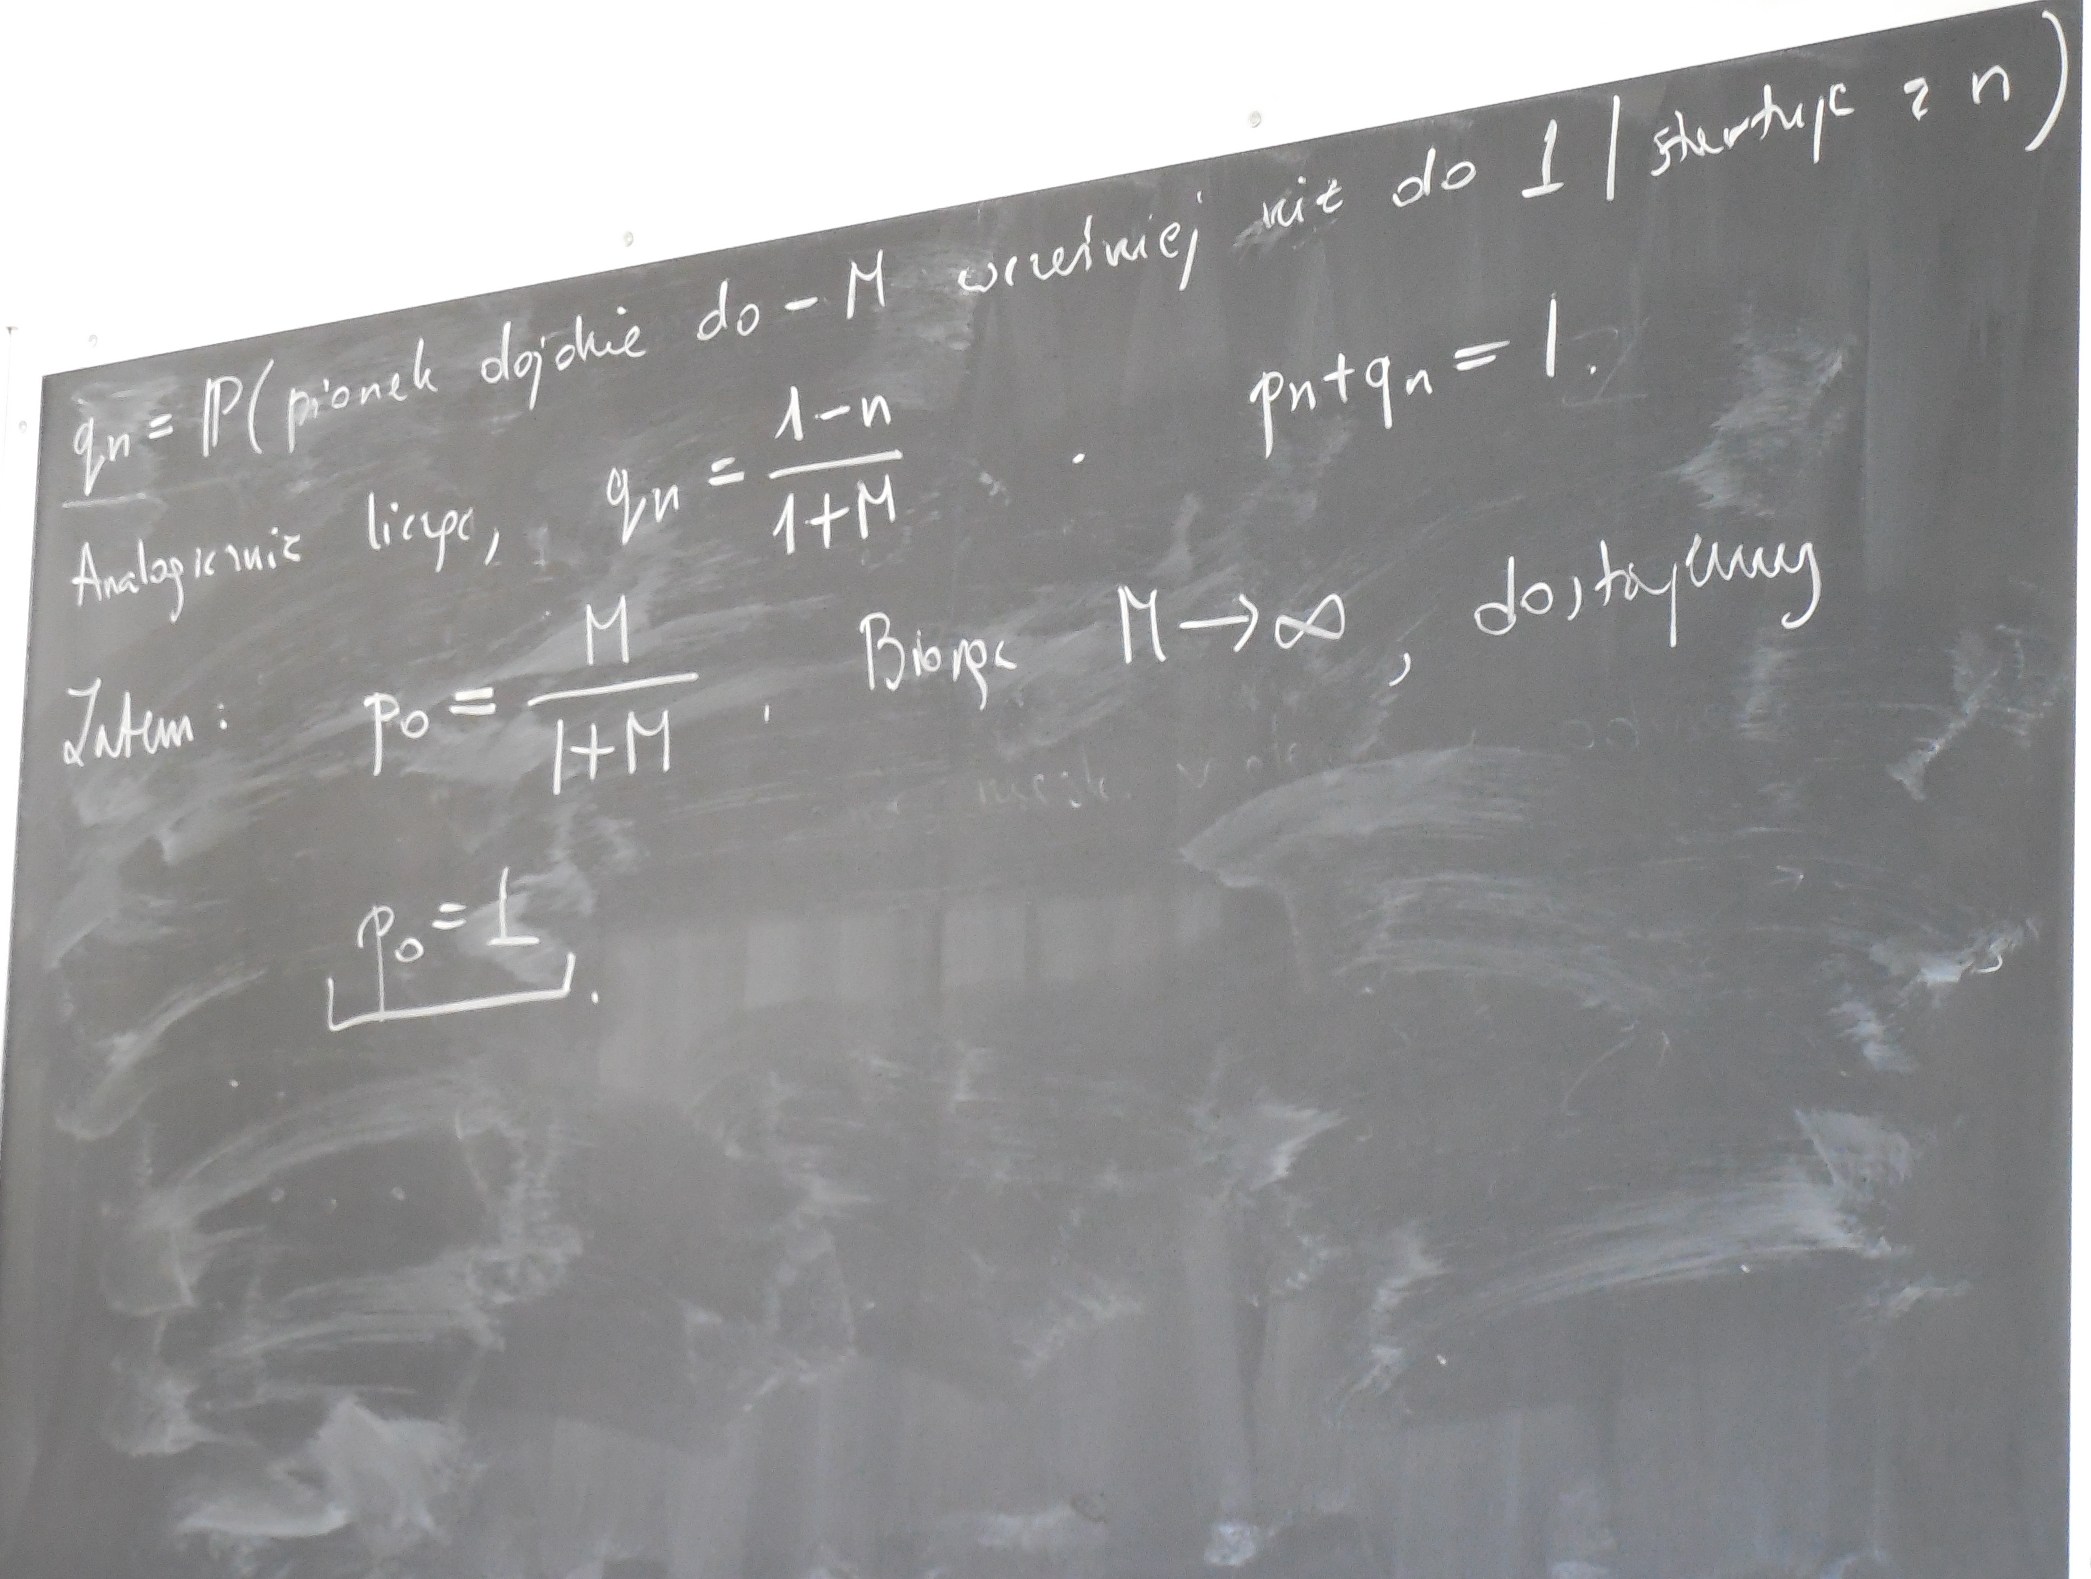 qₙ = ℙ(pionek dojdzie do -M wcześniej niż do 1 | startując z n)
Analogicznie licząc, qₙ = (1-n)/(1+M) . pₙ+qₙ = 1.
Zatem: p₀ = M/(1+M) . Biorąc M→∞, dostajemy
p₀ = 1.